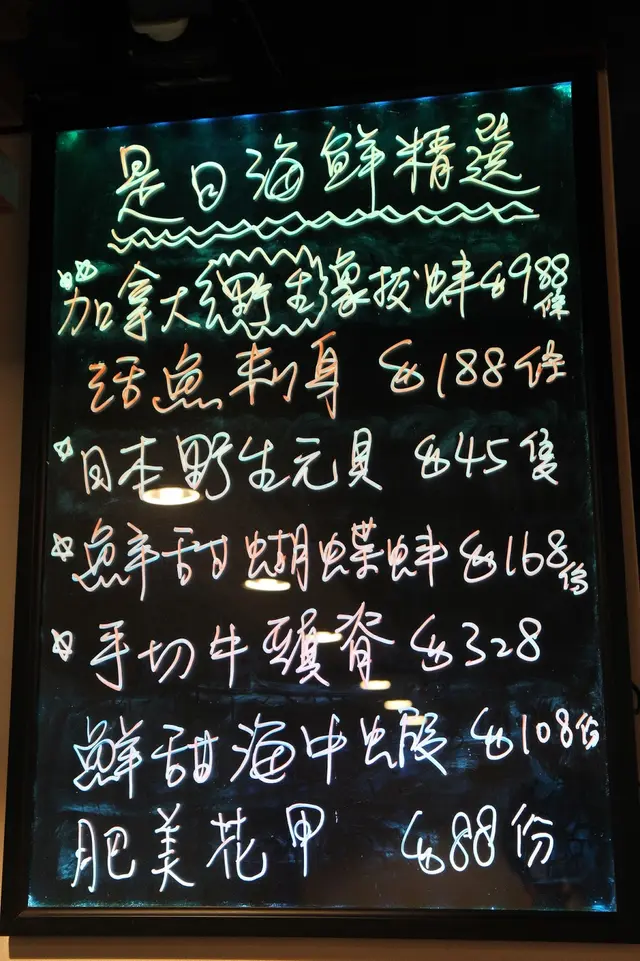 是日海鮮精選
加拿大野生象拔蚌$988條
活魚刺身 $188條
日本野生元貝 $45隻
鮮甜蝴蝶蚌$168份
手切牛頸脊 $328
鮮甜海中蝦 $108份
肥美花甲 $88份